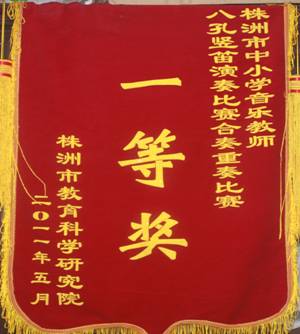 株洲市中小学音乐教师
八孔竖笛演奏比赛合奏重奏比赛
一等奖
株洲市教育科学研究院
二〇一一年五月